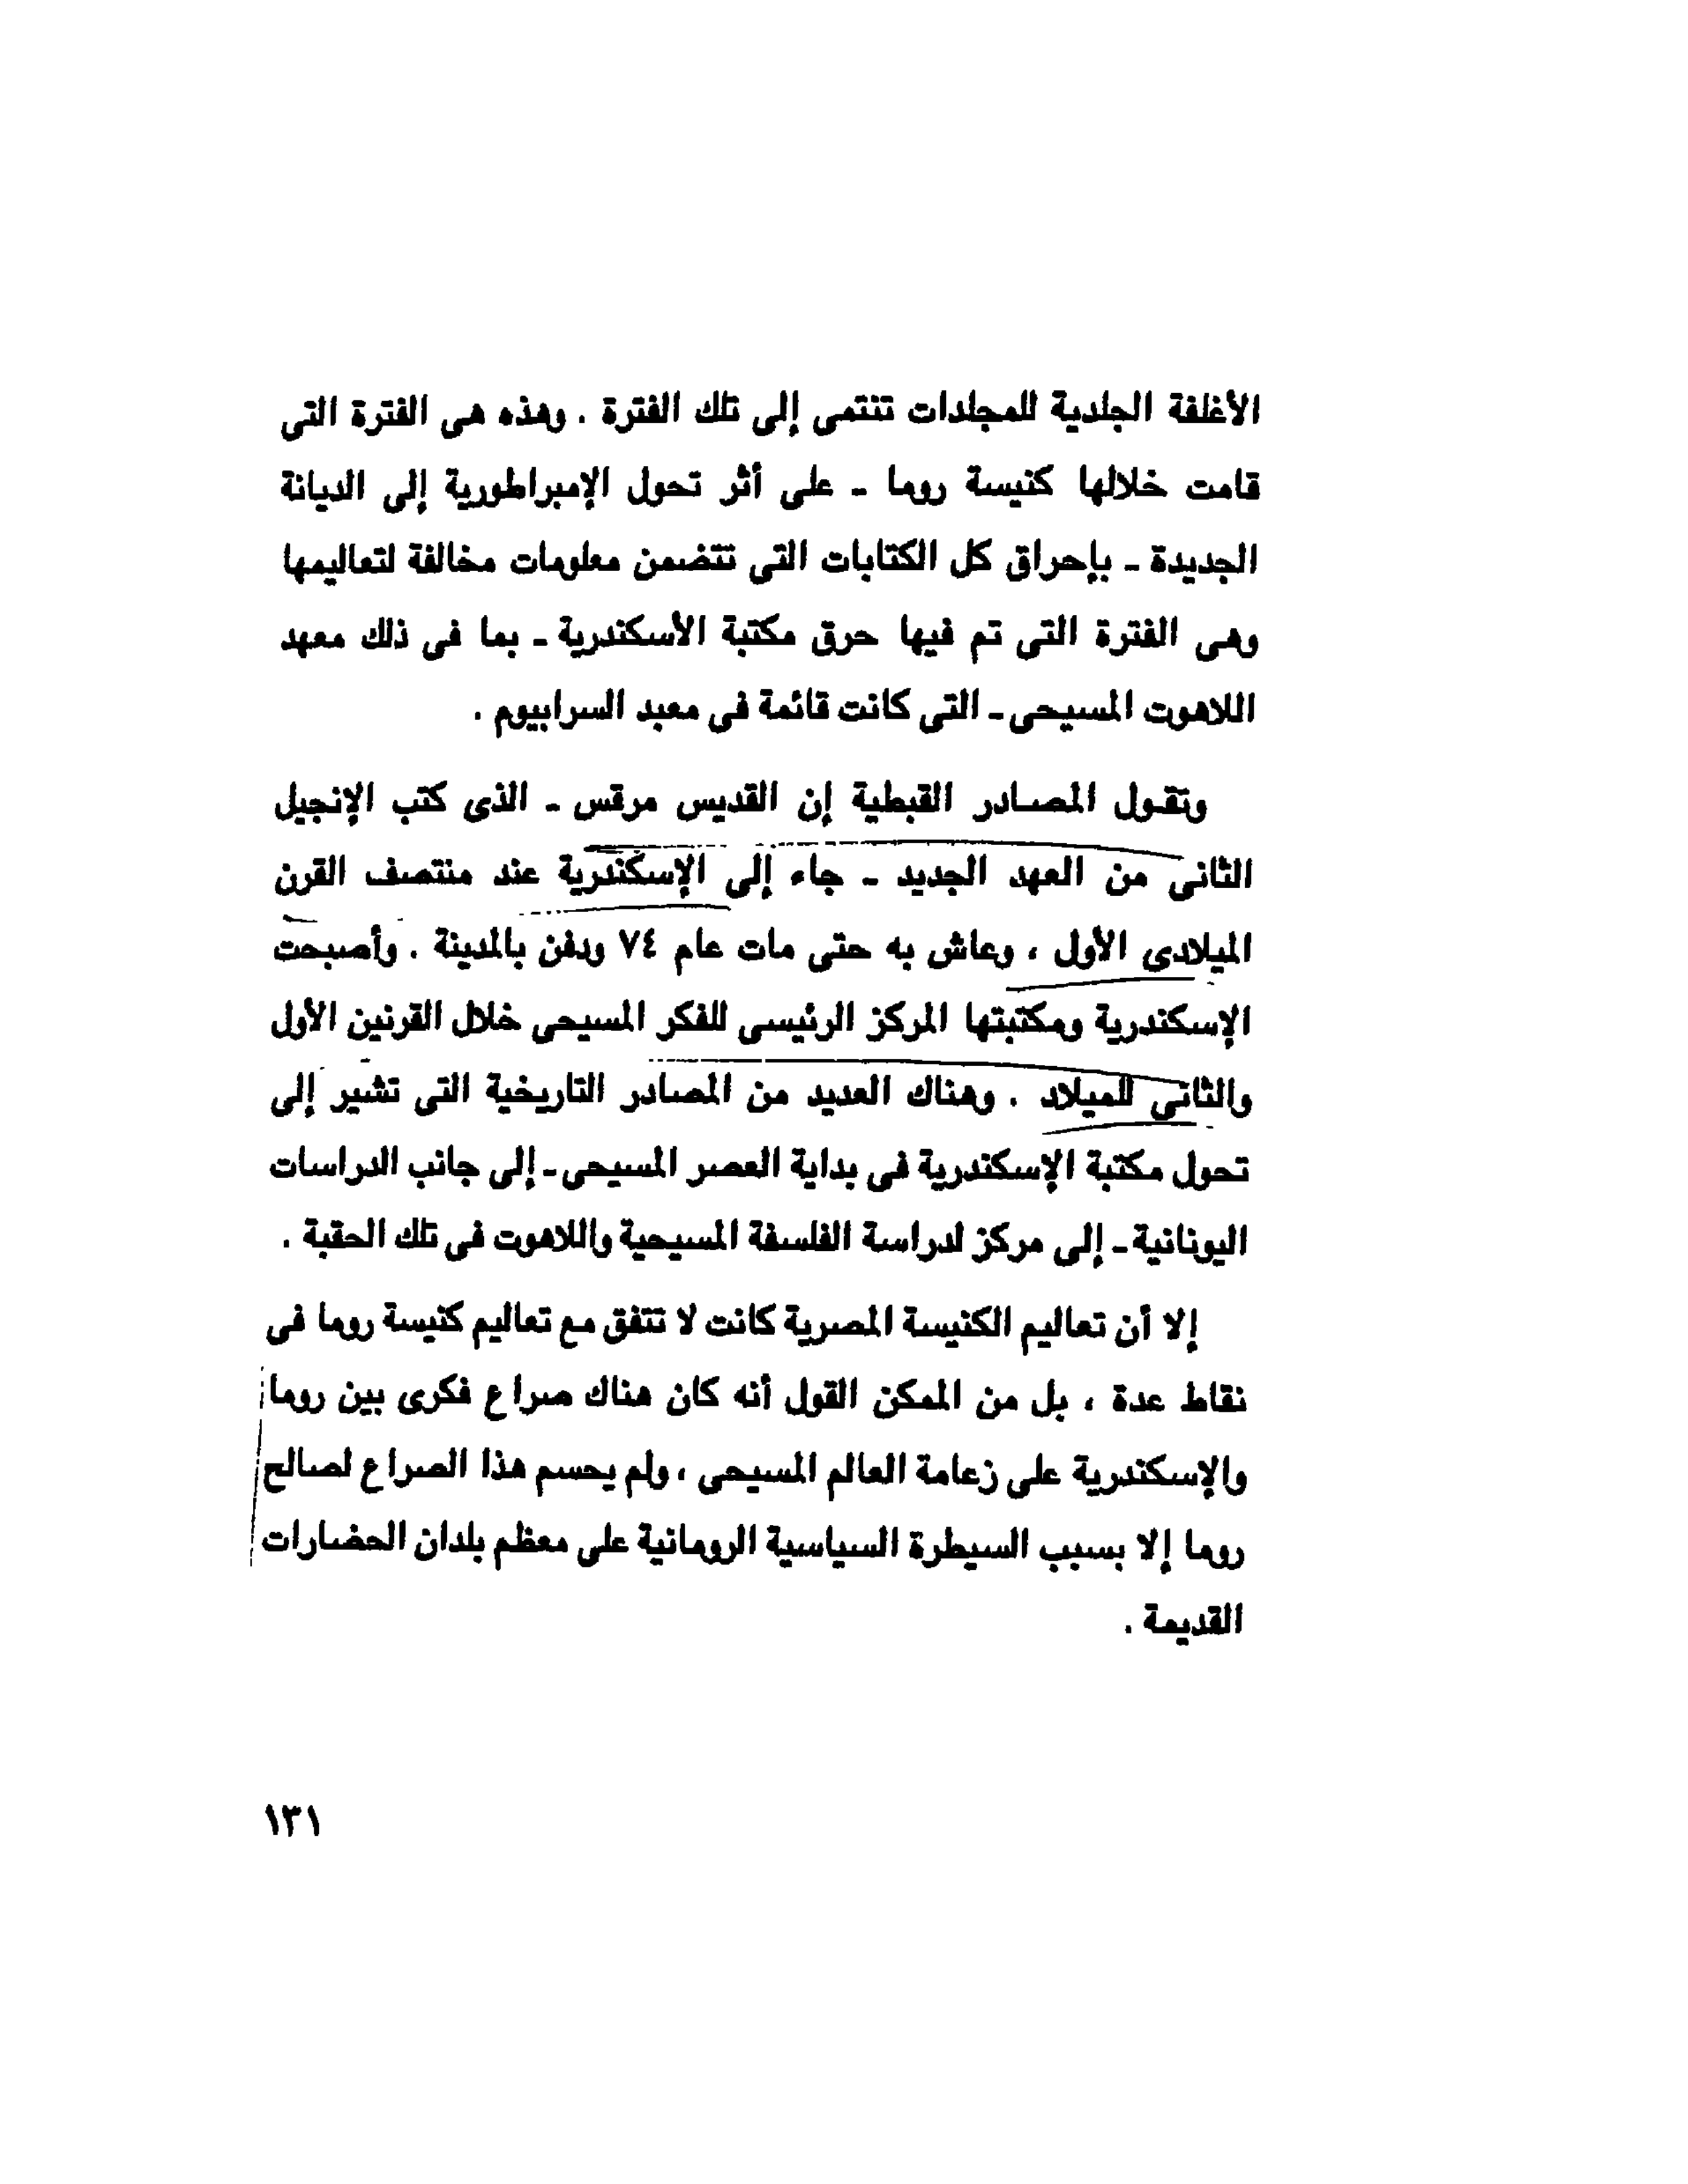 الأغلفة الجلدية للمجلدات تنتمى إلى تلك الفترة . وهذه هى الفترة التى
قامت خلالها كنيسة روما ـ على أثر تحول الإمبراطورية إلى الديانة
الجديدة ـ بإحراق كل الكتابات التى تتضمن معلومات مخالفة لتعاليمها
وهى الفترة التى تم فيها حرق مكتبة الأسكندرية ـ بما فى ذلك معهد
اللاهوت المسيحى ـ التى كانت قائمة فى معبد السرابيوم .
وتقول المصادر القبطية إن القديس مرقس ـ الذى كتب الإنجيل
الثانى من العهد الجديد ـ جاء إلى الإسكندرية عند منتصف القرن
الميلادى الأول ، وعاش به حتى مات عام ٧٤ ودفن بالمدينة . وأصبحت
الإسكندرية ومكتبتها المركز الرئيسى للفكر المسيحى خلال القرنين الأول
والثانى للميلاد . وهناك العديد من المصادر التاريخية التى تشير إلى
تحول مكتبة الإسكندرية فى بداية العصر المسيحى ـ إلى جانب الدراسات
اليونانية ـ إلى مركز لدراسة الفلسفة المسيحية واللاهوت فى تلك الحقبة .
إلا أن تعاليم الكنيسة المصرية كانت لا تتفق مع تعاليم كنيسة روما فى
نقاط عدة ، بل من الممكن القول أنه كان هناك صراع فكرى بين روما
والإسكندرية على زعامة العالم المسيحى ، ولم يحسم هذا الصراع لصالح
روما إلا بسبب السيطرة السياسية الرومانية على معظم بلدان الحضارات
القديمة .
١٣١